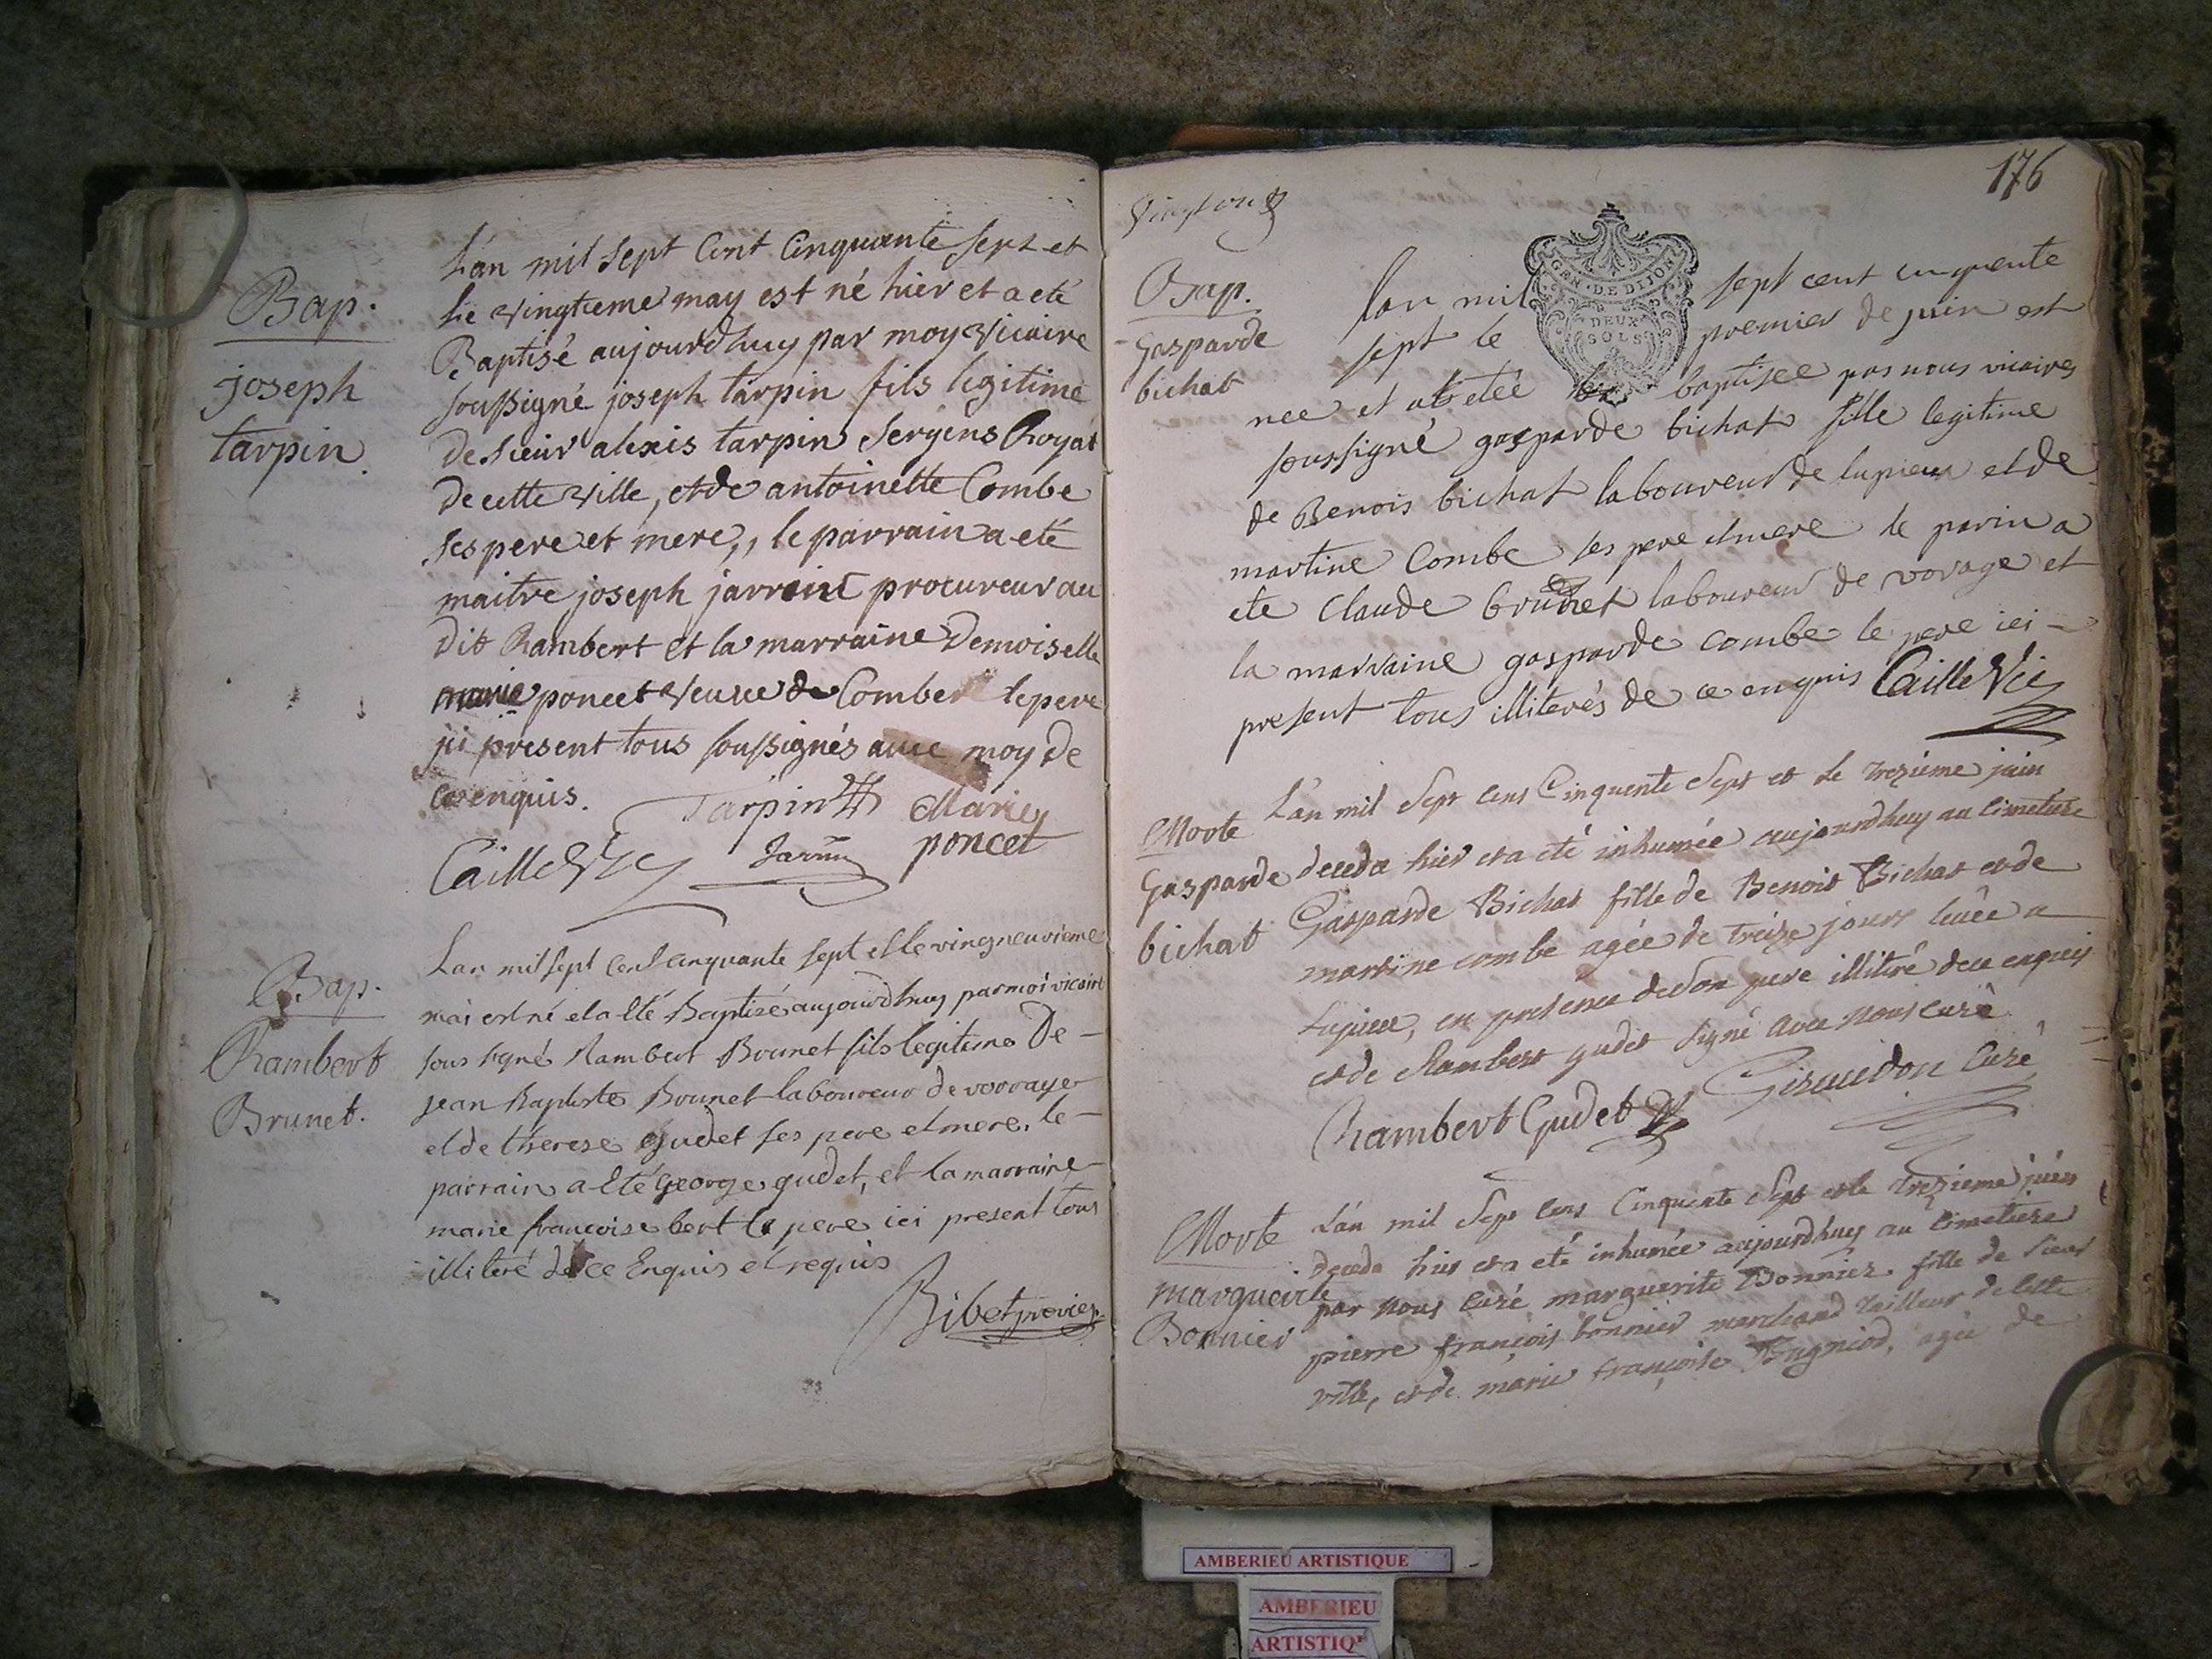 Bap.
joseph
tarpin.
L'an mil sept Cent Cinquante sept et
Le vingtieme may est né hier et a eté
Baptisé aujourdhuy par moy vicaire
soussigné joseph tarpin fils legitime
de sieur alexis tarpin sergens Royal
de cette ville, et de antoinette Combe
ses pere et mere,, le parrain a eté
maitre joseph jarrin procureur au
dit Rambert et la marraine Demoiselle
marie poncet veuve de Combe le pere
ici present tous soussignés avec moy de
ce enquis.
Tarpin Marie
Caille Vic Jarrin poncet
Bap.
Rambert
Brunet.
Lan mil sept cent cinquante sept et le vingneuvieme
mai est né et a eté Baptizé aujourdhuy par moi vicaire
sous signé Rambert Brunet fils legitime De -
jean Baptiste Brunet laboureur de vorage
et de therese gudet ses pere et mere. le -
parrain a eté george gudet, et la marraine
marie francoise bert le pere ici present tous
illiteré de ce Enquis et requis
176
Bap.
Gasparde
bichat
GEN · DE DIJON
DEUX
SOLS
lan mil sept cent cinquente
sept le premier de juin est
née et a eteé baptisee par nous vicaire
soussigné gasparde bichat fille legitime
de Benois bichat laboureur de lupieu et de
martine Combe ses pere et mere le parin a
ete Claude brunet laboureur de vorage et
la marraine gasparde combe le pere ici -
present tous illiterés de ce enquis Caille Vic
Morte
Gasparde
bichat
L'an mil sept cens Cinquente sept et le trezieme juin
deceda hier et a eté inhumée aujourdhuy au cimetiere
Gasparde Bichat fille de Benoit Bichat et de
martine combe agée de treize jours levée a
Lupieu, en presence de son pere illitiré de ce enquis
et de Rambert gudet signé avec nous curé
Rambert Gudet Giraudon curé
Morte
margueirte
Bonnier
L'an mil sept cens Cinquente sept et le trezieme juin
deceda hier et a eté inhumée aujourdhuy au cimetiere
par nous curé marguerite Bonnier fille de sieur
pierre françois bonnier marchand tailleur de cette
ville, et de marie françoise Bugniod, agée de
AMBERIEU ARTISTIQUE
AMBERIEU
ARTISTIQ